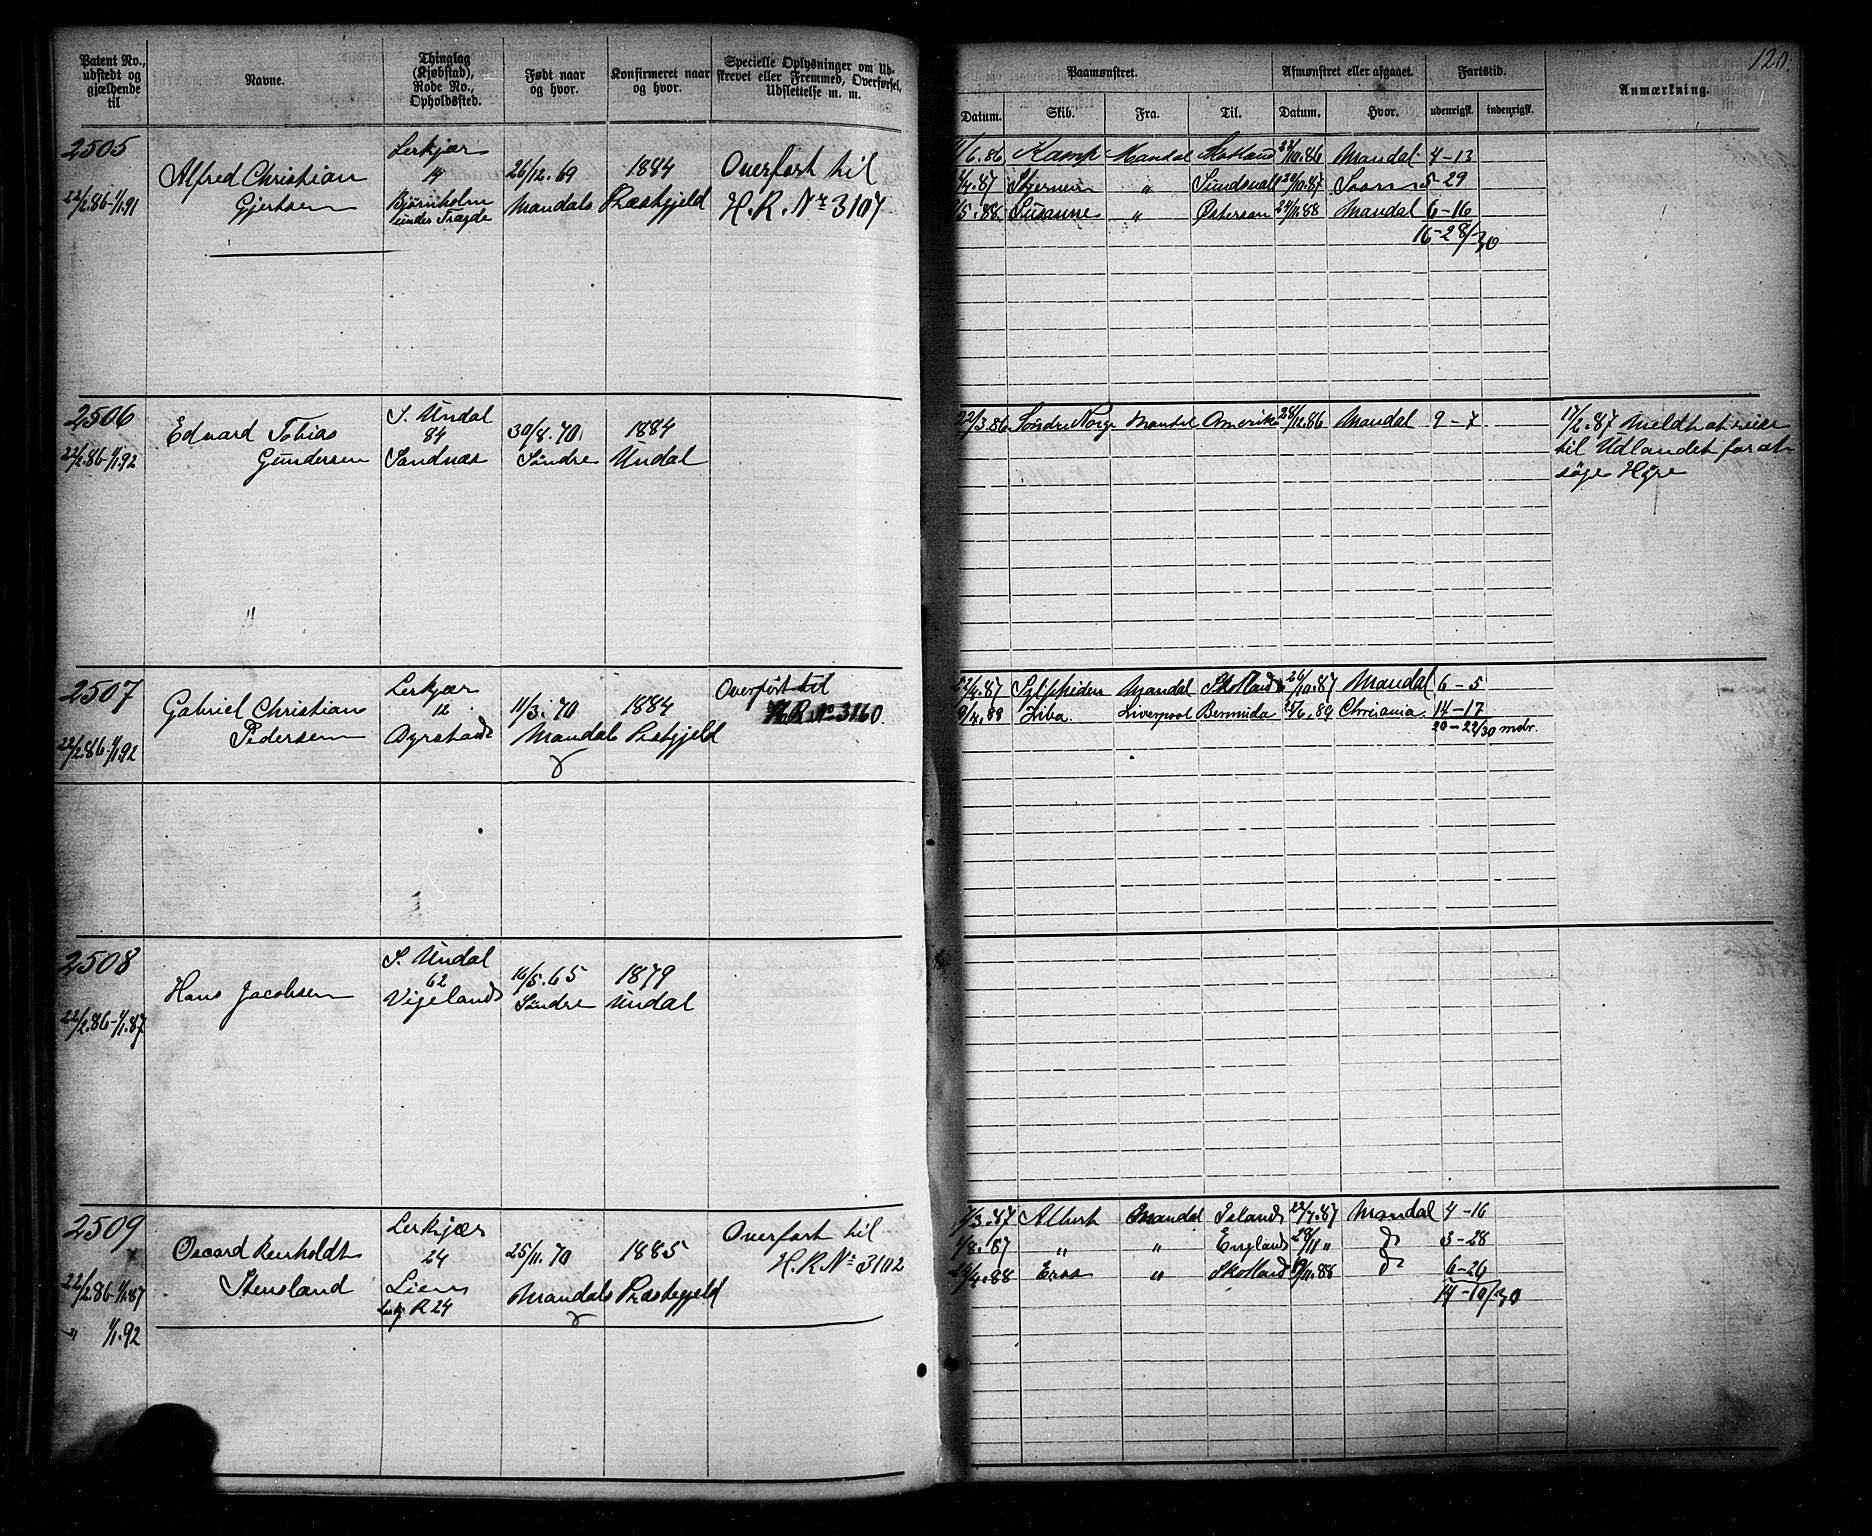 120.
Patent No., udstedt og gjældende til
Navne.
Thinglag (Kjøbstad), Rode No., Opholdssted.
Født naar og hvor.
Konfirmeret naar og hvor.
Specielle Oplysninger om Udskrevet eller Fremmed, Overførsel, Udslettelse m. m.
Paamønstret.
Afmønstret eller afgaaet.
Fartstid.
Anmærkning.
Datum.
Skib.
Fra.
Til.
Datum.
Hvor.
udenrigsk.
indenrigsk.
2505
22/2.86-1/1.91
Alfred Christian
Gjertsen
Lerkjær
14
Bjørnholm
under Tregde
26/12.69 1884
Mandals Præstgjeld
Overført til
H.R. Nr 3107
/6.86 Kamp Mandal Skotland 24/10.86 Mandal 4-13
/4.87 Stjernen " Sundsvall 29/10.87 5-29
/5.88 Susanne " Østersøen 24/11.88 Mandal 6-16
16-28/30
2506
22/2.86-1/1.92
Edvard Tobias
Gundersen
S. Undal
84
Sandnæs
30/8.70 1884
Søndre Undal
22/3.86 Søndre Norge Mandal Amerika 28/12.86 Mandal 9-7
17/2.87 Meldt at reise
til Udlandet for at
søge Hyre
2507
22/2.86-1/1.92
Gabriel Christian
Pedersen
Lerkjær
12
Dyrstads
11/3.70 1884
Mandals Præstgjeld
Overført til
H.R. No 3160.
22/4.87 Sylphiden Mandal Skotland 26/10.87 Mandal 6-5
9/4.88 Ziba. Liverpool Bermuda 25/6.89 Chrisania. 14-17
20-22/30 mdr.
2508
22/2.86-1/1.87
Hans Jacobsen
S. Undal
62
Vigelands
16/5.65 1879
Søndre Undal
2509
22/2.86-1/1.87
" 1/1.92
Oscard Renholdt
Stensland
Lerkjær
24
Liens
Lerkj. R 24
25/11.70 1885
Mandals Præstegjeld
Overført til
H.R. No 3102
/3.87 Albert Mandal Island 22/7.87 Mandal 4-16
/8.87 " " England 28/11 " do 3-28
24/4.88 Eros " Skotland /11.88 do 6-26
14-10/30